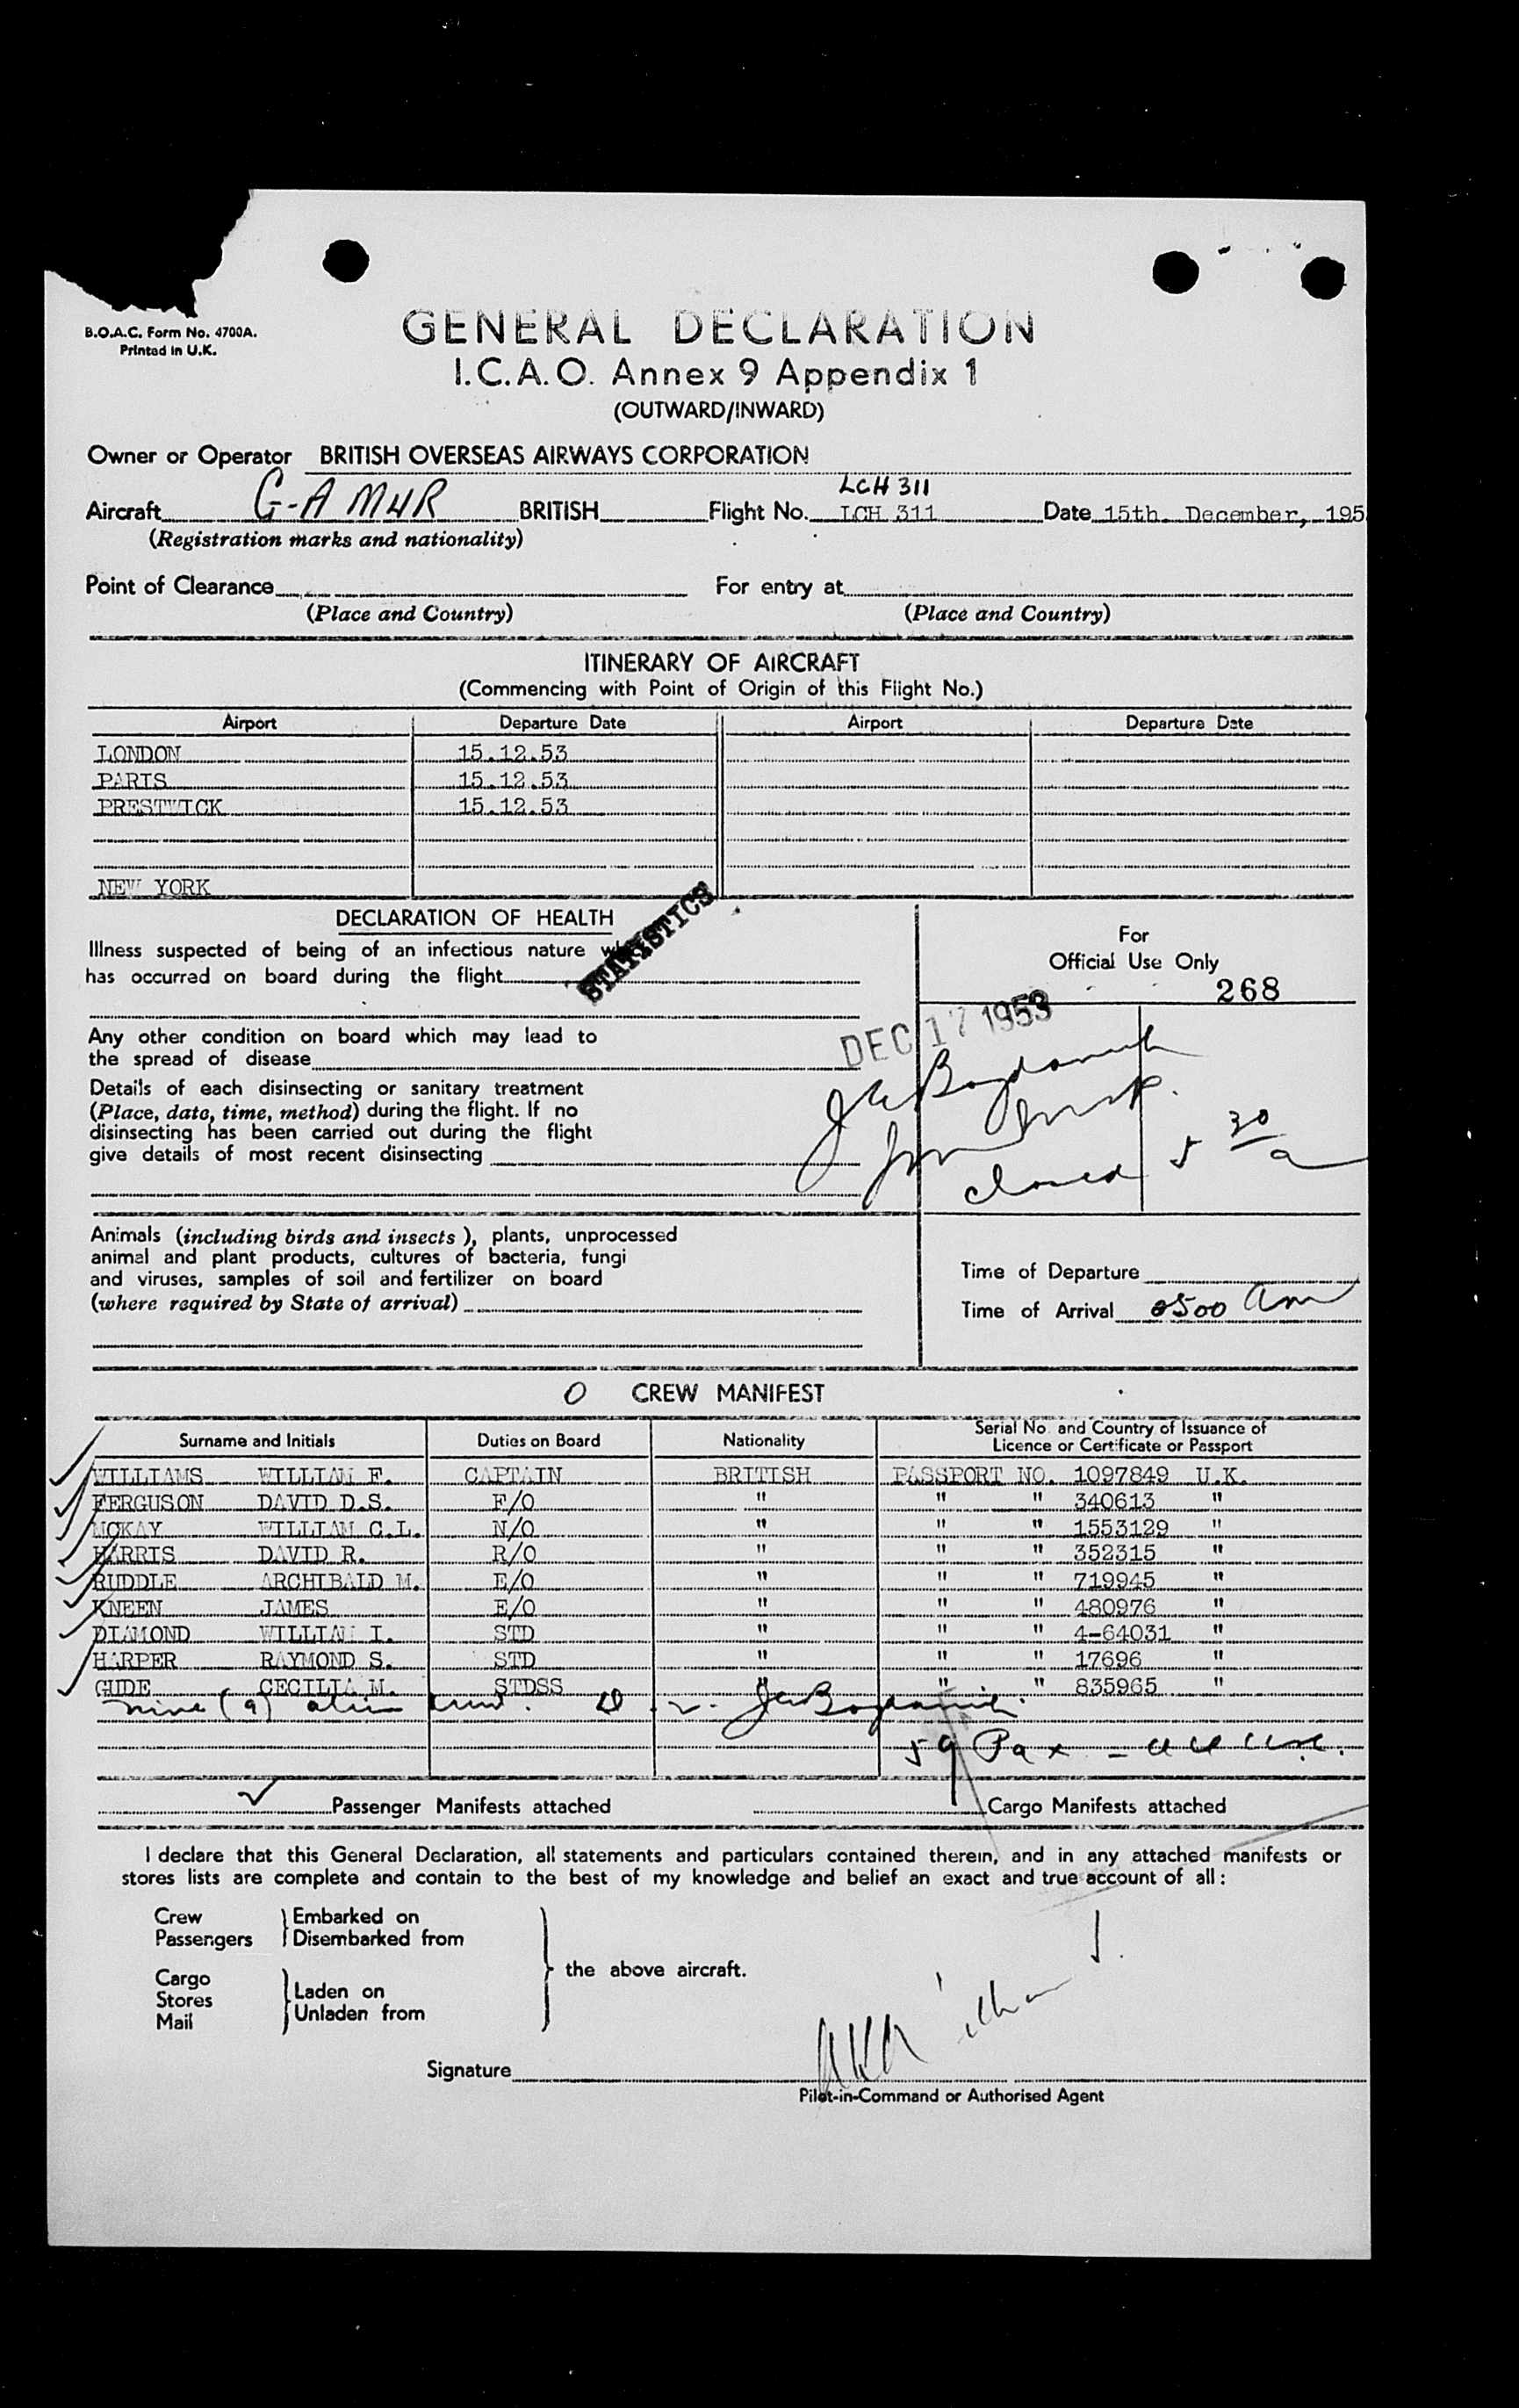 B.O.A.C. Form No. 4700A.
Printed in U.K.
GENERAL DECLARATION
I.C.A.O. Annex 9 Appendix 1
(OUTWARD/INWARD)
Owner or Operator BRITISH OVERSEAS AIRWAYS CORPORATION
LCH 311
Aircraft G-AM4R BRITISH Flight No. LCH 311 Date 15th. December, 195
(Registration marks and nationality)
Point of Clearance For entry at
(Place and Country) (Place and Country)
ITINERARY OF AIRCRAFT
(Commencing with Point of Origin of this Flight No.)
Airport Departure Date Airport Departure Date
LONDON 15.12.53
PARIS 15.12.53
PRESTWICK 15.12.53
NEW YORK
STATISTICS
DECLARATION OF HEALTH
Illness suspected of being of an infectious nature
has occurred on board during the flight
Any other condition on board which may lead to
the spread of disease
Details of each disinsecting or sanitary treatment
(Place, date, time, method) during the flight. If no
disinsecting has been carried out during the flight
give details of most recent disinsecting
Animals (including birds and insects), plants, unprocessed
animal and plant products, cultures of bacteria, fungi
and viruses, samples of soil and fertilizer on board
(where required by State of arrival)
For
Official Use Only
268
DEC 17 1953
closed 5 30/a
Time of Departure
Time of Arrival 0500 am
O CREW MANIFEST
Surname and Initials Duties on Board Nationality Serial No. and Country of Issuance of
Licence or Certificate or Passport
WILLIAMS WILLIAM F. CAPTAIN BRITISH PASSPORT NO. 1097849 U.K.
FERGUSON DAVID D.S. F/O " " " 340613 "
MCKAY WILLIAM C.L. N/O " " " 1553129 "
HARRIS DAVID R. R/O " " " 352315 "
RUDDLE ARCHIBALD M. E/O " " " 719945 "
KNEEN JAMES E/O " " " 480976 "
DIAMOND WILLIAM I. STD " " " 4-64031 "
HARPER RAYMOND S. STD " " " 17696 "
GUDE CECILIA M. STDSS " " " 835965 "
nine (9) alien
59 Pax
Passenger Manifests attached Cargo Manifests attached
I declare that this General Declaration, all statements and particulars contained therein, and in any attached manifests or
stores lists are complete and contain to the best of my knowledge and belief an exact and true account of all:
Crew Embarked on
Passengers Disembarked from
the above aircraft.
Cargo
Stores Laden on
Mail Unladen from
Signature
Pilot-in-Command or Authorised Agent